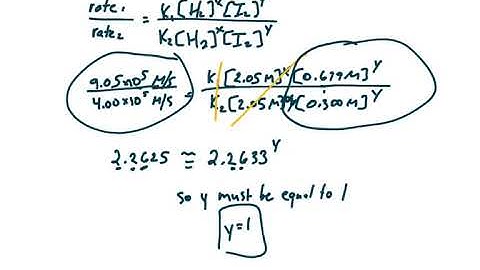 rate₁/rate₂ = K₁[H₂]ˣ[I₂]ʸ / K₂[H₂]ˣ[I₂]ʸ
9.05x10⁵ M/s / 4.00x10⁵ M/s = K₁[2.05M]ˣ[0.679M]ʸ / K₂[2.05M]ˣ[0.300M]ʸ
2.2625 ≅ 2.2633ʸ
so y must be equal to 1
y=1